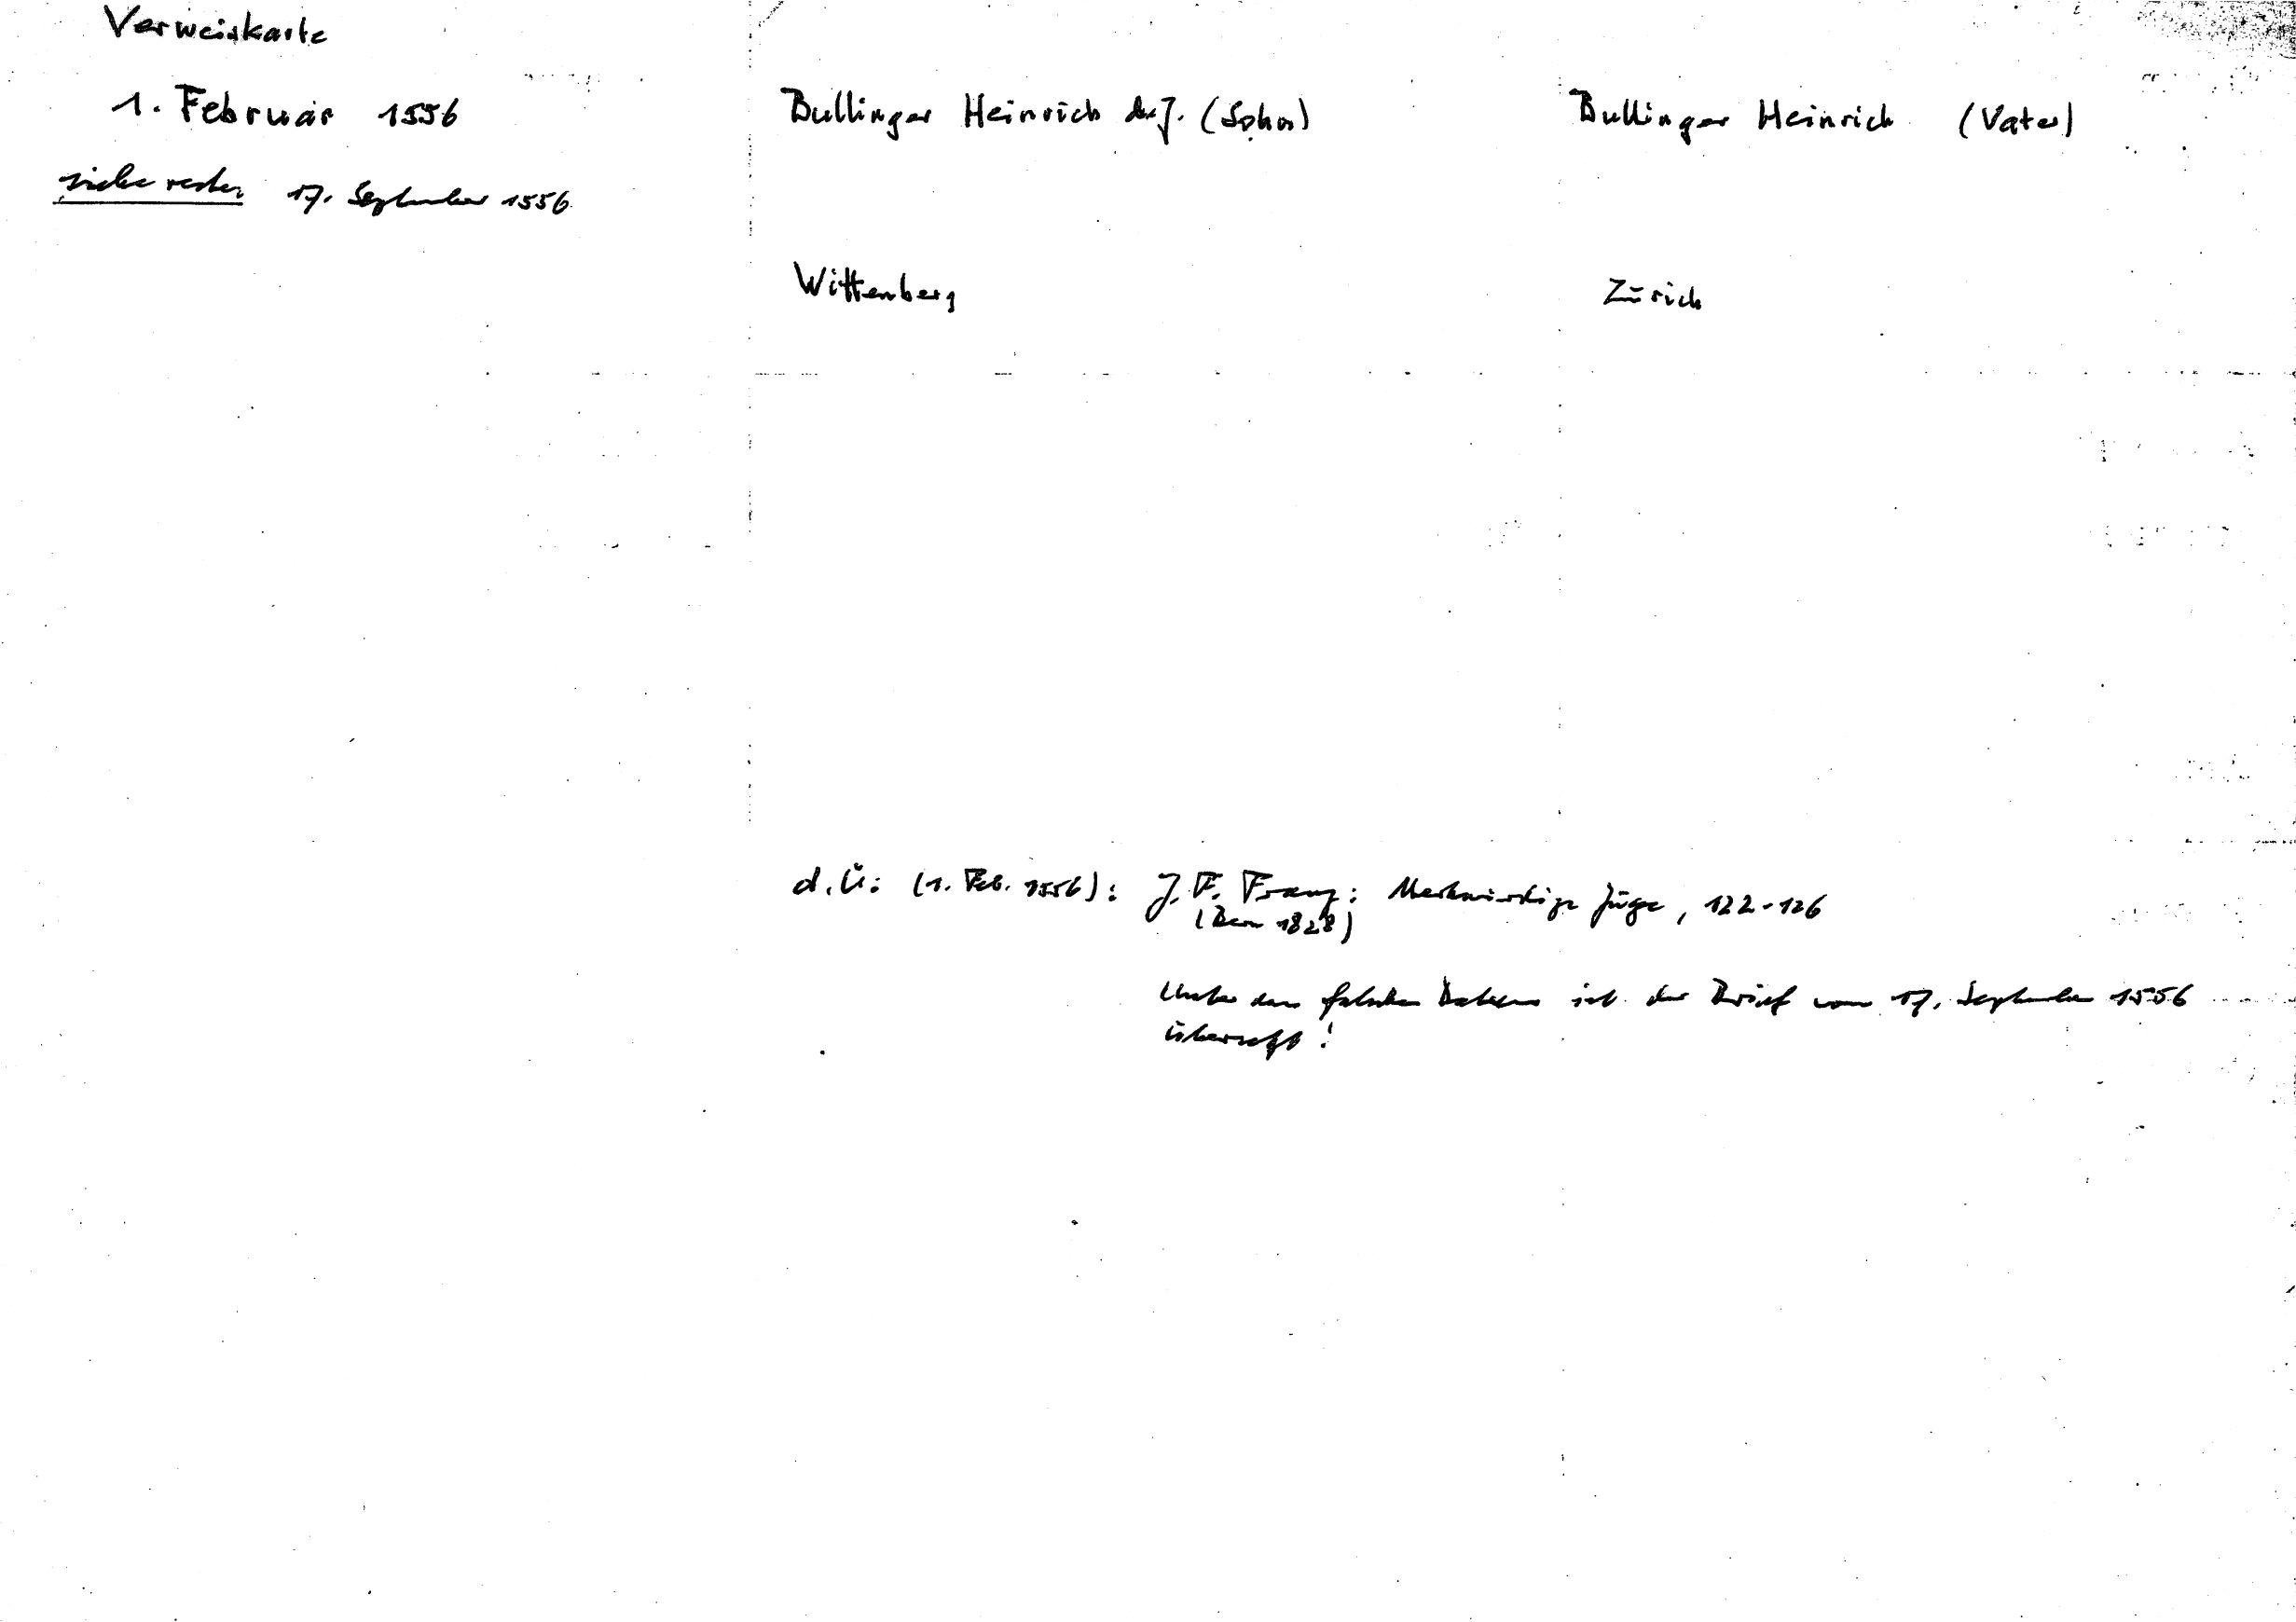 Verweiskarte
1. Februar 1556
siehe unter 17. September 1556
Bullinger Heinrich d.J. (Sohn)
Wittenberg
Bullinger Heinrich (Vater)
Zürich
d. Ü: (1. Feb. 1556): J. F. Franz: Merkwürdige Züge, 122-126
(Bern 1828)
Unter dem falschen Datum ist der Brief vom 17. September 1556
übersetzt!